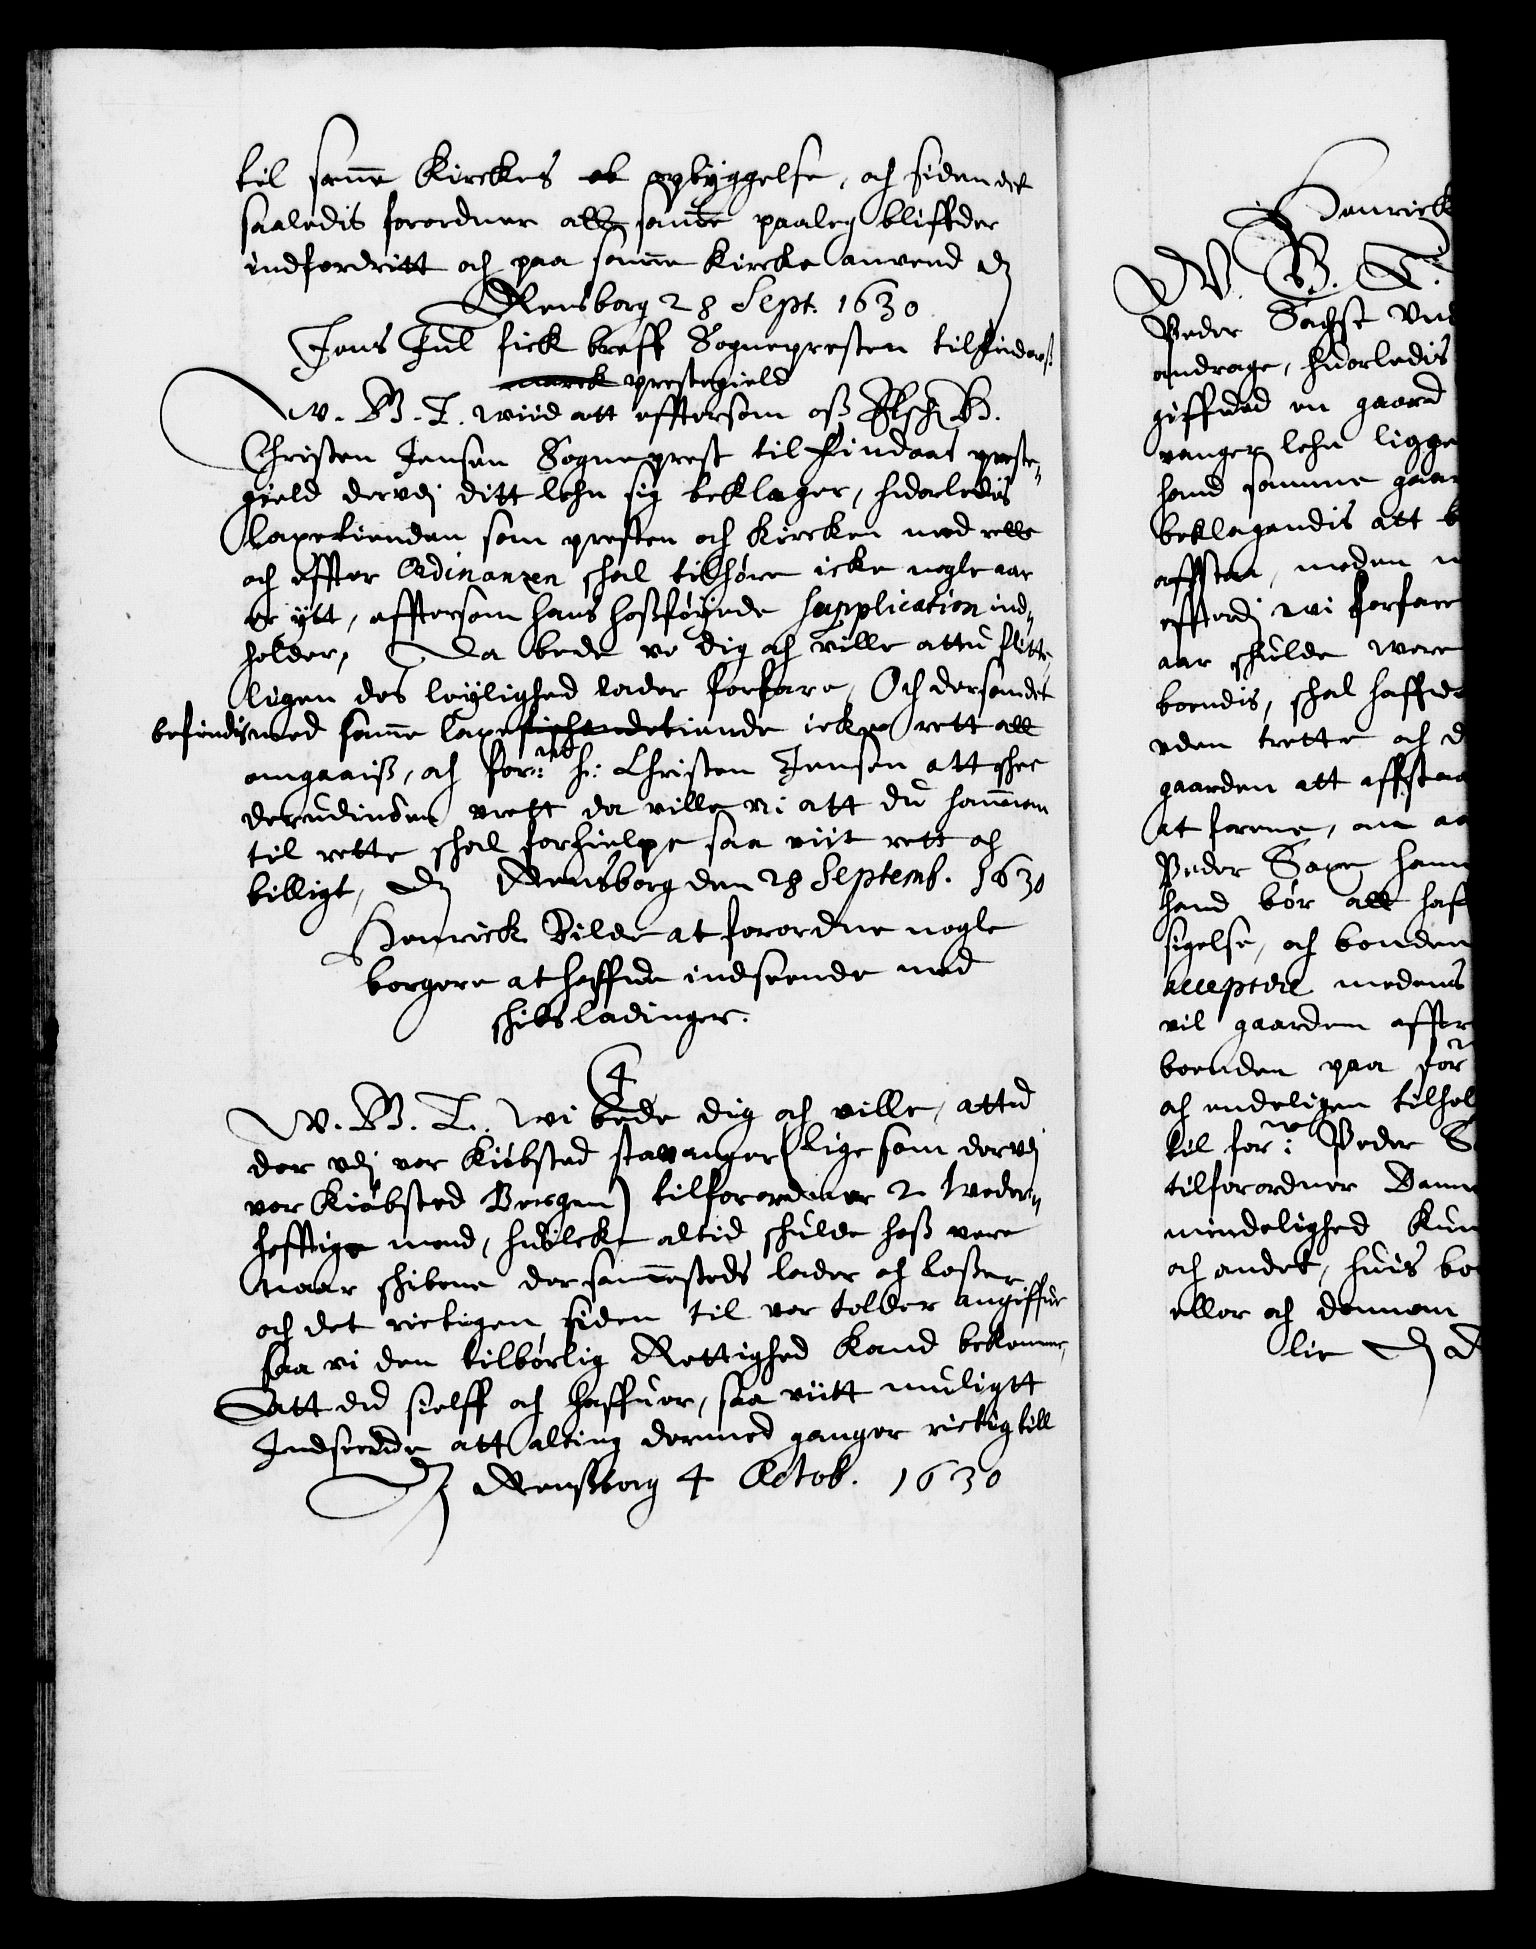 til samme Kirckes ob opbyggelse, och siden det
saaledis forordner att samme paaleg bliffver
indfordritt och paa samme Kircke anvend D
Rensborg 28 Sept. 1630
Jens Jul fick breff Sognepresten til Lindaas
marck prestegield
W. G. T. wiid att efftersom oß Elsch H.
Christen Jensen Sogneprest til Lindaas preste-
gield dervdj ditt lehn sig beklager, hvorledis
Laxetienden som presten och Kircken med rette
och effter Ordinanzen skal tilhøre icke nogle aar
er ytt, efftersom hans hoßføyede supplication ind-
holder, Da bede ve dig och ville attu flitte-
ligen des leylighed lader forfare, Och dersom det
befindis med samme Laxe fischendetiende icke rett att
omgaaiß, och for:ne h: Christen Jensen att skee
derudinden vrett da ville vi att du hannem
til rette skal forhielpe saa viit rett och
billigt, D Rensborg den 28 Septemb. 1630
Henrick Bilde at forordne nogle
borgere at haffve indseende med
skibsladinger.
4
W. G. T. Wi bede dig och ville, att du
der vdj vor Kiøbsted stavanger (lige som dervdj
vor Kiøbsted Bergen) tilforordner 2 weder-
hefftige mend, huilcke altid skulde hoß vere
naar skibene der sammesteds lader och loßer
och det rictigen siden til vor tolder angiffve
saa vi den tilbørlig Rettighed Kand bekomme,
Att du sielff och haffuer, saa viitt muligtt
Indseende att alting dermed ganger rictig till
D Rensborg 4 Octob. 1630
Henrick
W. G. T.
Peder
andrage, huorledis
giffved en gaard
vanger lehn ligge
hand samme gaar
beklagendis att
affstaa, meden
effterdj wi forfare
aar skulde were
boendis, skal haffve
vden trette och
gaarden att affstaa
at ferene, om
Peder Saxe
hand bør att haf
sigelse, och bonden
accepere medens
vil gaarden effter
boenden paa for
och endeligen tilhol
til for:ne Peder S
tilforordner Dann
mindelighed Kun
och andet, huis bo
eller och dennem
lie D